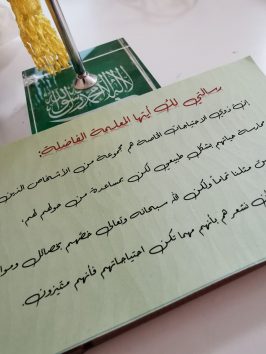 لا إله إلا الله محمد رسول الله
رسالتي لكِ أيتها المعلمة الفاضلة:
إن ذوي الاحتياجات الخاصة هم مجموعة من الأشخاص الذين
ممارسة حياتهم بشكل طبيعي لكن بمساعدة من حولهم فهم
مثلنا تماماً ولكن الله سبحانه وتعالى خصهم بخصائل
نشعر هم بأنهم مهما تكن احتياجاتهم فإنهم مميزون.